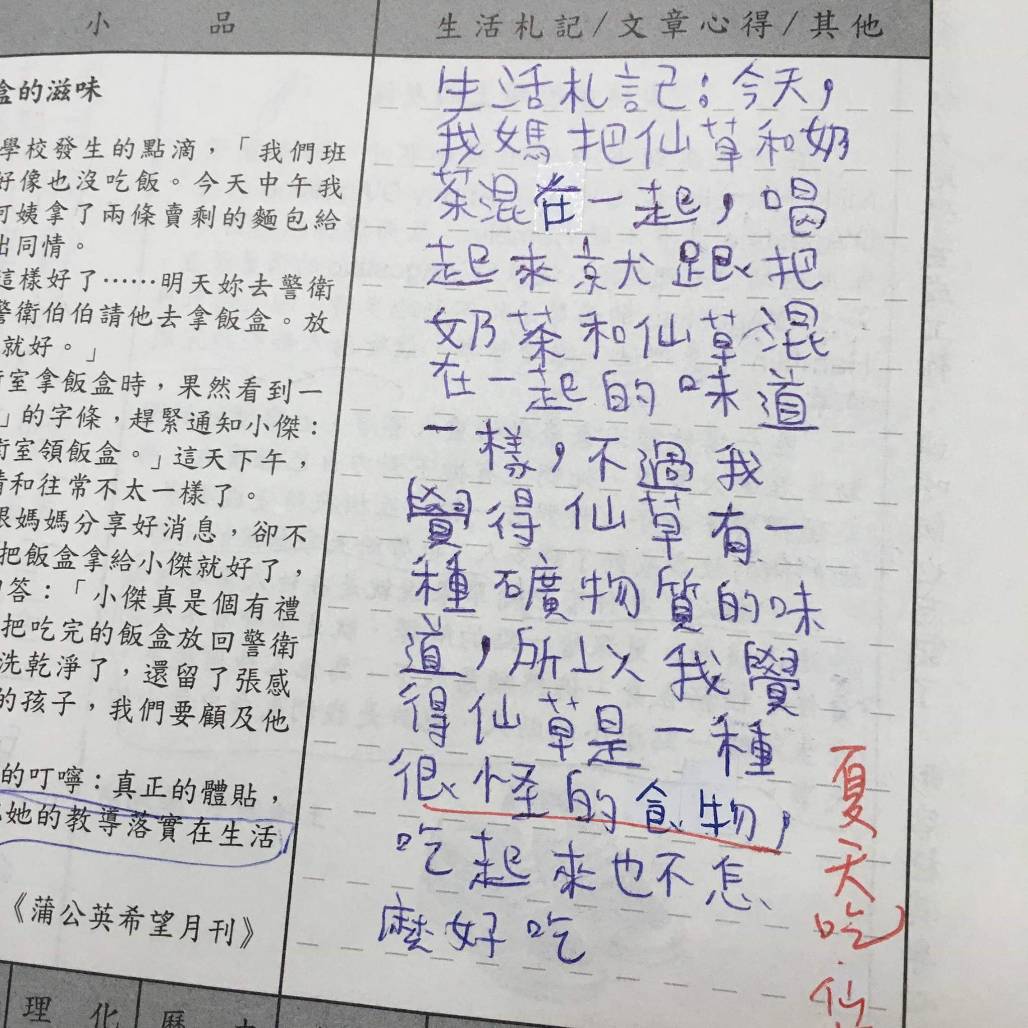 小 品
生活札記/文章心得/其他
盒的滋味
學校發生的點滴，「我們班
好像也沒吃飯。今天中午我
阿姨拿了兩條賣剩的麵包給
出同情。
這樣好了……明天妳去警衛
警衛伯伯請他去拿飯盒。放
就好。」
衛室拿飯盒時，果然看到一
」的字條，趕緊通知小傑：
衛室領飯盒。」這天下午，
情和往常不太一樣了。
跟媽媽分享好消息，卻不
把飯盒拿給小傑就好了，
回答：「小傑真是個有禮
把吃完的飯盒放回警衛
洗乾淨了，還留了張感
的孩子，我們要顧及他
的叮嚀：真正的體貼，
她的教導落實在生活
《蒲公英希望月刊》
理 化
歷
生活札記：今天，
我媽把仙草和奶
茶混在一起，喝
起來京尤跟把
奶茶和仙草混
在一起的味道
一樣，不過我
覺得仙草有一
種礦物質的味
道，所以我覺
得仙草是一種
很怪的食物，
吃起來也不怎
麼好吃
夏天吃仙